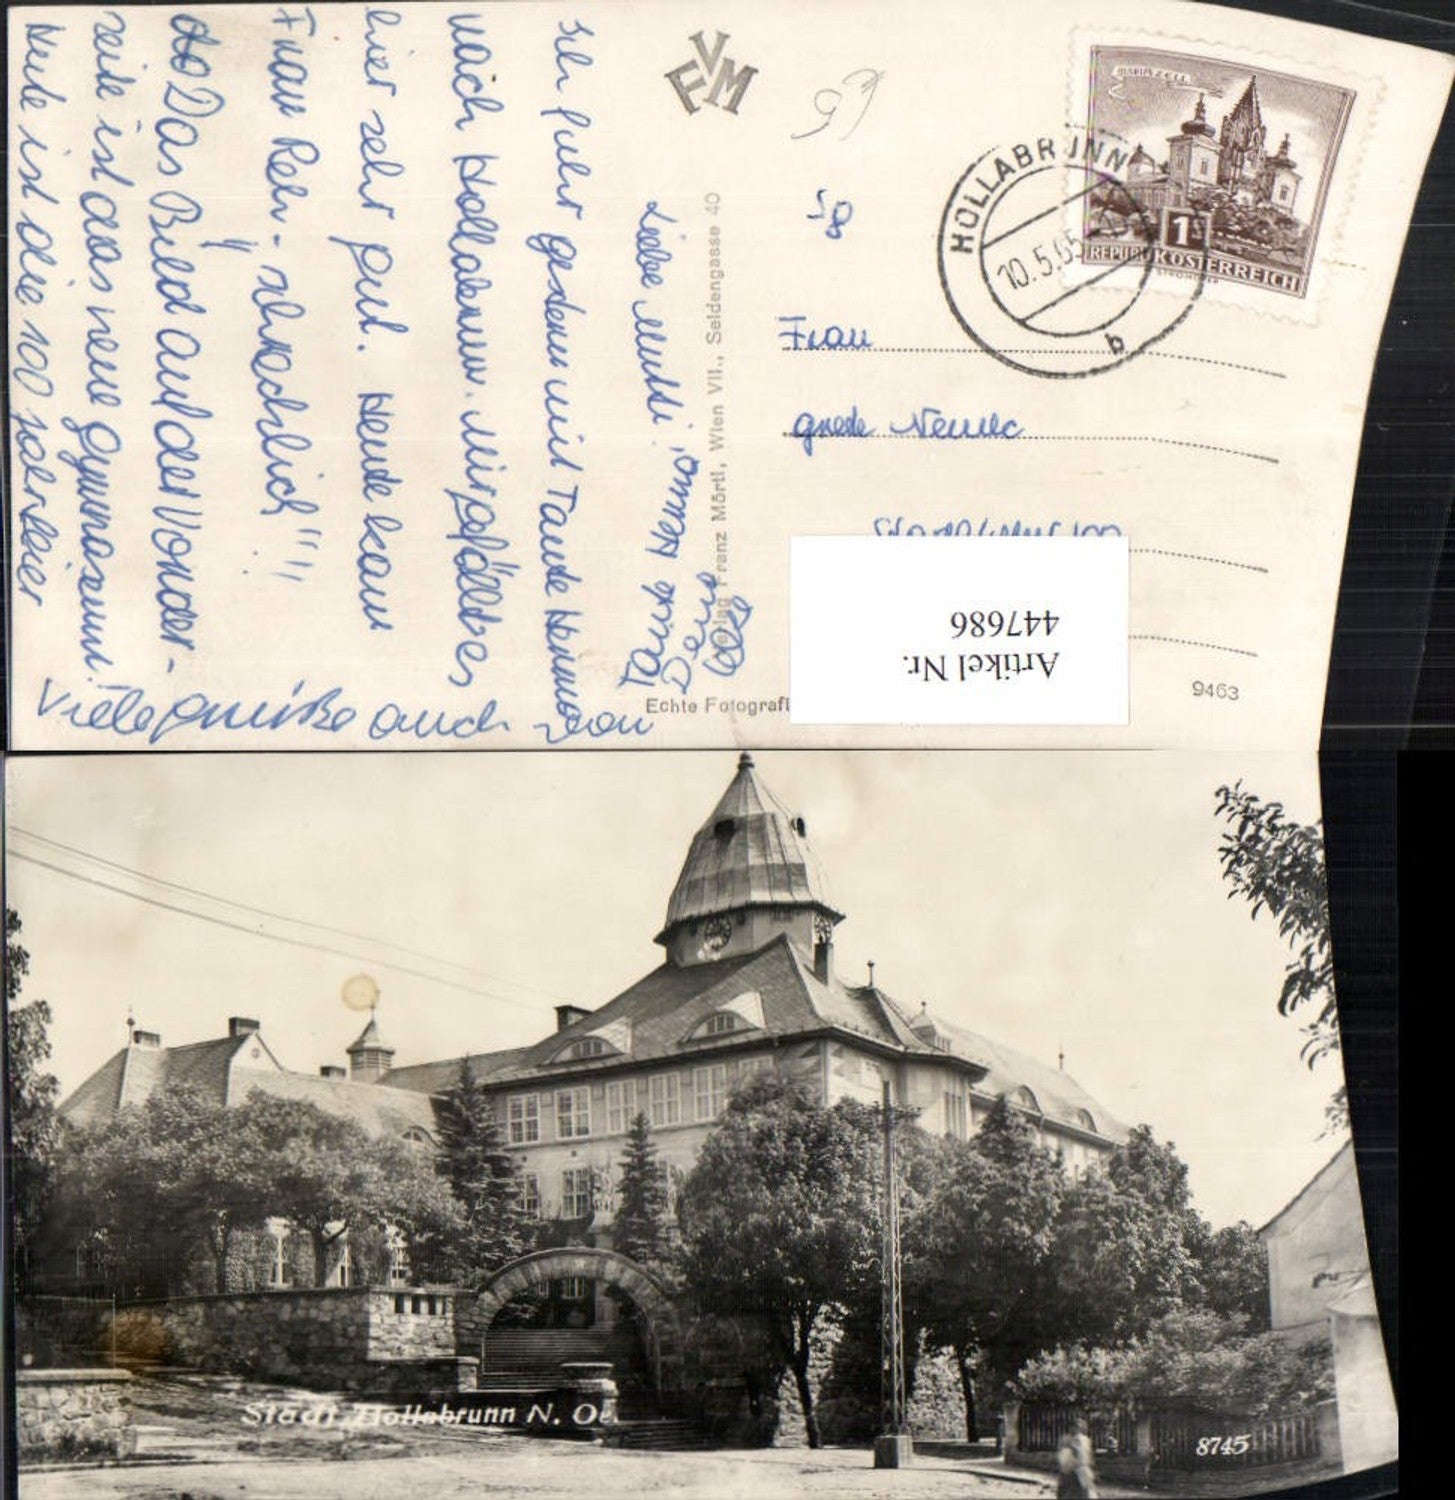 Liebe Mutti!
Ich fuhr gestern mit Tante Hermi
nach Hollabrunn. Mir gefällt es
hier sehr gut. Heute kam
Frau Reh-
Das Bild auf der Vorder-
seite ist das neue Gymnasium!
Heute ist die 100
Viele grüße auch von
Hermi
FVM
59
Verlag Franz Mörtl, Wien VII., Seidengasse 40
Echte Fotografi
MARIAZELL
1
REPUBLIK ÖSTERREICH
HOLLABRUNN
10.5.65
b
Frau
grete Nemec
Artikel Nr.
447686
9463
Stadt Hollabrunn N. Oe.
8745